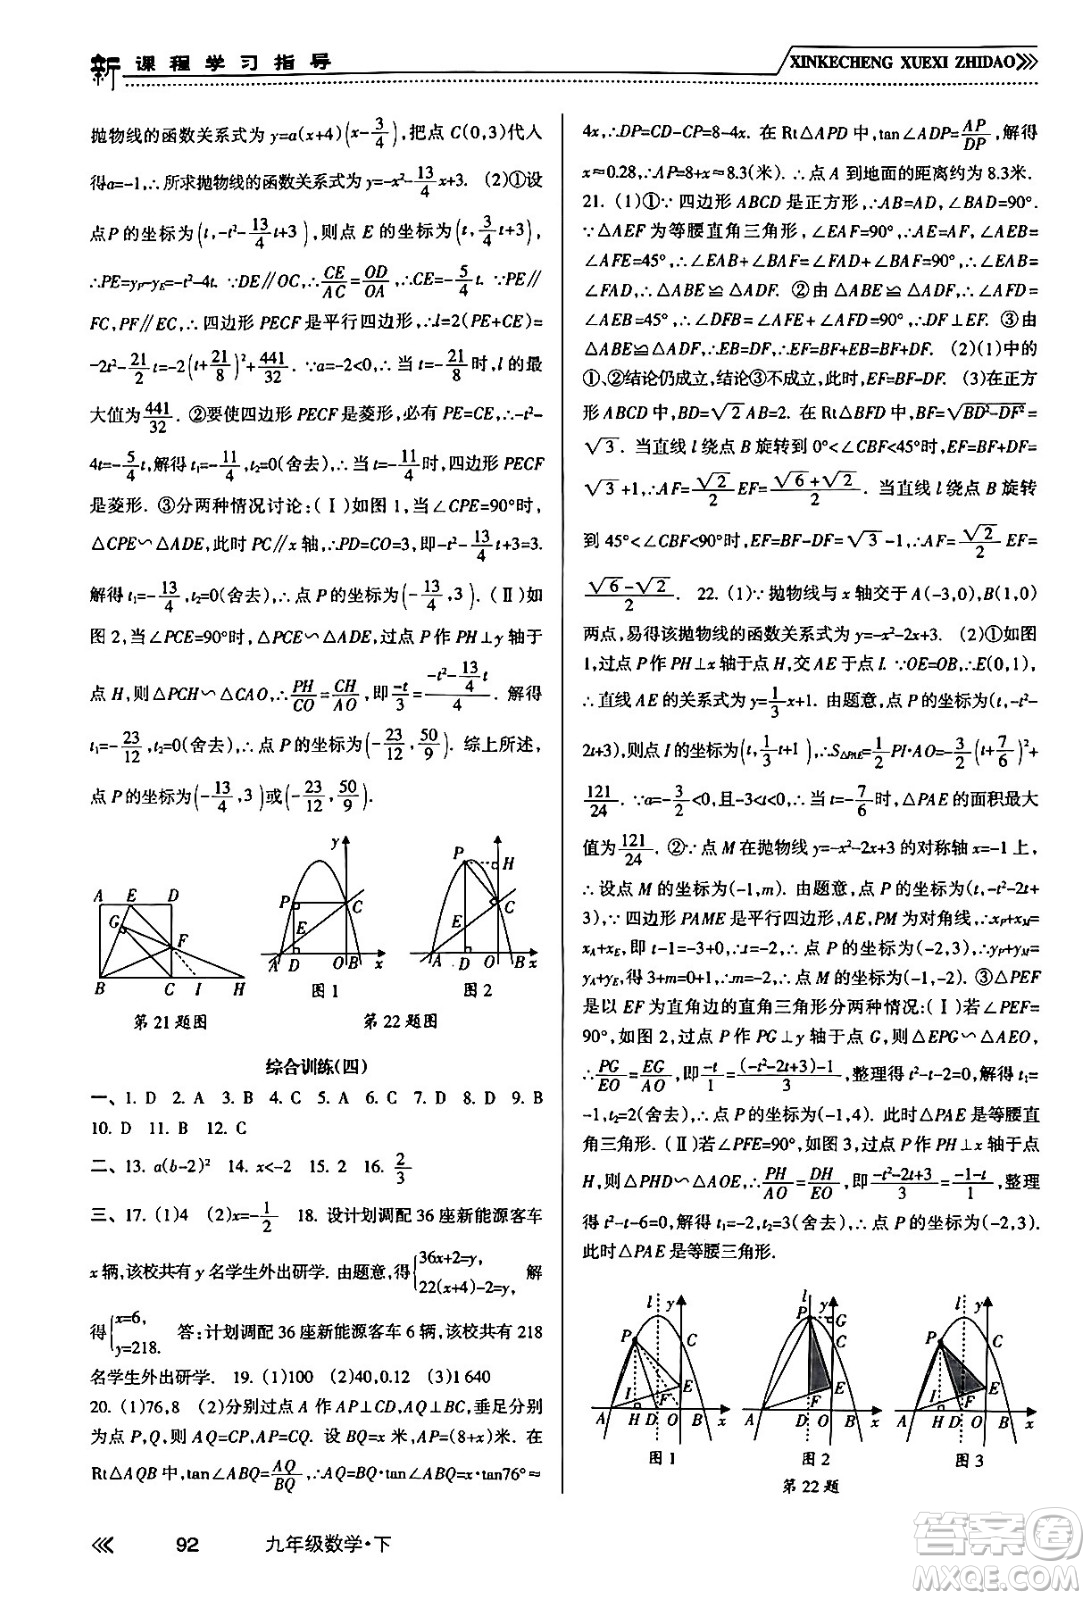 新课程学习指导
XINKECHENG XUEXI ZHIDAO
抛物线的函数关系式为 y=a(x+4)(x-3/4),把点 C(0,3)代入
得a=-1,∴所求抛物线的函数关系式为y=-x²-13/4x+3. (2)①设
点P的坐标为(t,-t²-13/4t+3),则点 E 的坐标为(t,3/4t+3),
∴PE=yP-yE=-t²-4t. ∵DE∥OC,∴CE/AC=OD/OA,∴CE=-5/4t. ∵PE∥
FC,PF∥EC,∴四边形 PECF 是平行四边形,∴l=2(PE+CE)=
-2t²-21/2t=-2(t+21/8)²+441/32. ∵a=-2<0,∴当 t=-21/8时,l 的最
大值为441/32. ②要使四边形 PECF 是菱形,必有 PE=CE,∴-t²-
4t=-5/4t,解得 t₁=-11/4,t₂=0(舍去),∴当 t=-11/4时,四边形 PECF
是菱形. ③分两种情况讨论:(Ⅰ)如图 1,当∠CPE=90°时,
△CPE∽△ADE,此时 PC∥x 轴,∴PD=CO=3,即-t²-13/4t+3=3.
解得 t₁=-13/4,t₂=0(舍去),∴点 P 的坐标为(-13/4,3). (Ⅱ)如
图 2,当∠PCE=90°时,△PCE∽△ADE,过点 P 作 PH⊥y 轴于
点 H,则△PCH∽△CAO,∴PH/CO=CH/AO,即-t/3=(-t²-13/4t)/4. 解得
t₁=-23/12,t₂=0(舍去),∴点 P 的坐标为(-23/12,50/9). 综上所述,
点 P 的坐标为(-13/4,3)或(-23/12,50/9).
A E D G F B C I H
第 21 题图
y P C E A D O x
图 1
y P H C E A D O B x
图 2
第 22 题图
综合训练(四)
一、1. D 2. A 3. B 4. C 5. A 6. D 7. D 8. D 9. B
10. D 11. B 12. C
二、13. a(b-2)² 14. x<-2 15. 2 16. 2/3
三、17. (1)4 (2)x=-1/2 18. 设计划调配 36 座新能源客车
x 辆,该校共有 y 名学生外出研学. 由题意,得{36x+2=y, 22(x+4)-2=y, 解
得{x=6, y=218. 答:计划调配 36 座新能源客车 6 辆,该校共有 218
名学生外出研学. 19. (1)100 (2)40,0.12 (3)1 640
20. (1)76,8 (2)分别过点 A 作 AP⊥CD,AQ⊥BC,垂足分别
为点 P,Q,则 AQ=CP,AP=CQ. 设 BQ=x 米,AP=(8+x)米. 在
Rt△AQB 中,tan∠ABQ=AQ/BQ,∴AQ=BQ·tan∠ABQ=x·tan76°≈
4x,∴DP=CD-CP=8-4x. 在 Rt△APD 中,tan∠ADP=AP/DP,解得
x≈0.28,∴AP=8+x≈8.3(米). ∴点 A 到地面的距离约为 8.3米.
21. (1)①∵四边形 ABCD 是正方形,∴AB=AD,∠BAD=90°.
∵△AEF 为等腰直角三角形,∠EAF=90°,∴AE=AF,∠AEB=
∠AFE=45°,∴∠EAB+∠BAF=∠FAD+∠BAF=90°,∴∠EAB=
∠FAD,∴△ABE≌△ADF. ②由△ABE≌△ADF,∴∠AFD=
∠AEB=45°,∴∠DFB=∠AFE+∠AFD=90°,∴DF⊥EF. ③由
△ABE≌△ADF,∴EB=DF,∴EF=BF-EB=BF-DF. (2)(1)中的
①、②结论仍成立,结论③不成立,此时,EF=BF-DF. (3)在正方
形 ABCD 中,BD=√2AB=2. 在 Rt△BFD 中,BF=√(BD²-DF²)=
√3. 当直线 l 绕点 B 旋转到 0°<∠CBF<45°时,EF=BF+BE=
√3+1,∴AF=√2/2EF=(√6+√2)/2. 当直线 l 绕点 B 旋转
到 45°<∠CBF<90°时,EF=BF-BE=√3-1,∴AF=√2/2EF=
(√6-√2)/2. 22. (1)∵抛物线与 x 轴交于 A(-3,0),B(1,0)
两点,易得该抛物线的函数关系式为 y=-x²-2x+3. (2)①如图
1,过点 P 作 PH⊥x 轴于点 H,交 AE 于点 I. ∵OE=OB,∴E(0,1),
∴直线 AE 的关系式为 y=1/3x+1. 由题意,点 P 的坐标为(t,-t²-
2t+3),则点 I 的坐标为(t,1/3t+1),∴S△PAE=1/2PI·AO=-3/2(t+7/6)²+
121/24. ∵a=-3/2<0,且-3<t<0,∴当 t=-7/6时,△PAE 的面积最大
值为121/24. ②∵点 M 在抛物线 y=-x²-2x+3 的对称轴 x=-1 上,
∴设点 M 的坐标为(-1,m). 由题意,点 P 的坐标为(t,-t²-2t+
3),∵四边形 PAME 是平行四边形,AE,PM 为对角线,∴xP+xM=
xA+xE,即 t-1=-3+0,∴t=-2,∴点 P 的坐标为(-2,3),∴yP+yM=
yA+yE,得 3+m=0+1,∴m=-2,∴点 M 的坐标为(-1,-2). ③△PEF
是以 EF 为直角边的直角三角形分两种情况:(Ⅰ)若∠PEF=
90°,如图 2,过点 P 作 PG⊥y 轴于点 G,则△EPG∽△AEO,
∴PG/EO=EG/AO,即-t/1=(-t²-2t+3)/3,整理得 t²-t-2=0,解得 t₁=
-1,t₂=2(舍去),∴点 P 的坐标为(-1,4). 此时△PAE 是等腰直
角三角形. (Ⅱ)若∠PFE=90°,如图 3,过点 P 作 PH⊥x 轴于点
H,则△PHD∽△AOE,∴PH/AO=DH/EO,即(-t²-2t+3)/3=(-1-t)/1,整理
得 t²-t-6=0,解得 t₁=-2,t₂=3(舍去),∴点 P 的坐标为(-2,3).
此时△PAE 是等腰三角形.
l y P C I E F A H D O B x
图 1
l y P G C E F A D O B x
图 2
l y P C I E F A H D O B x
图 3
第 22 题
92 九年级数学·下
答案圈